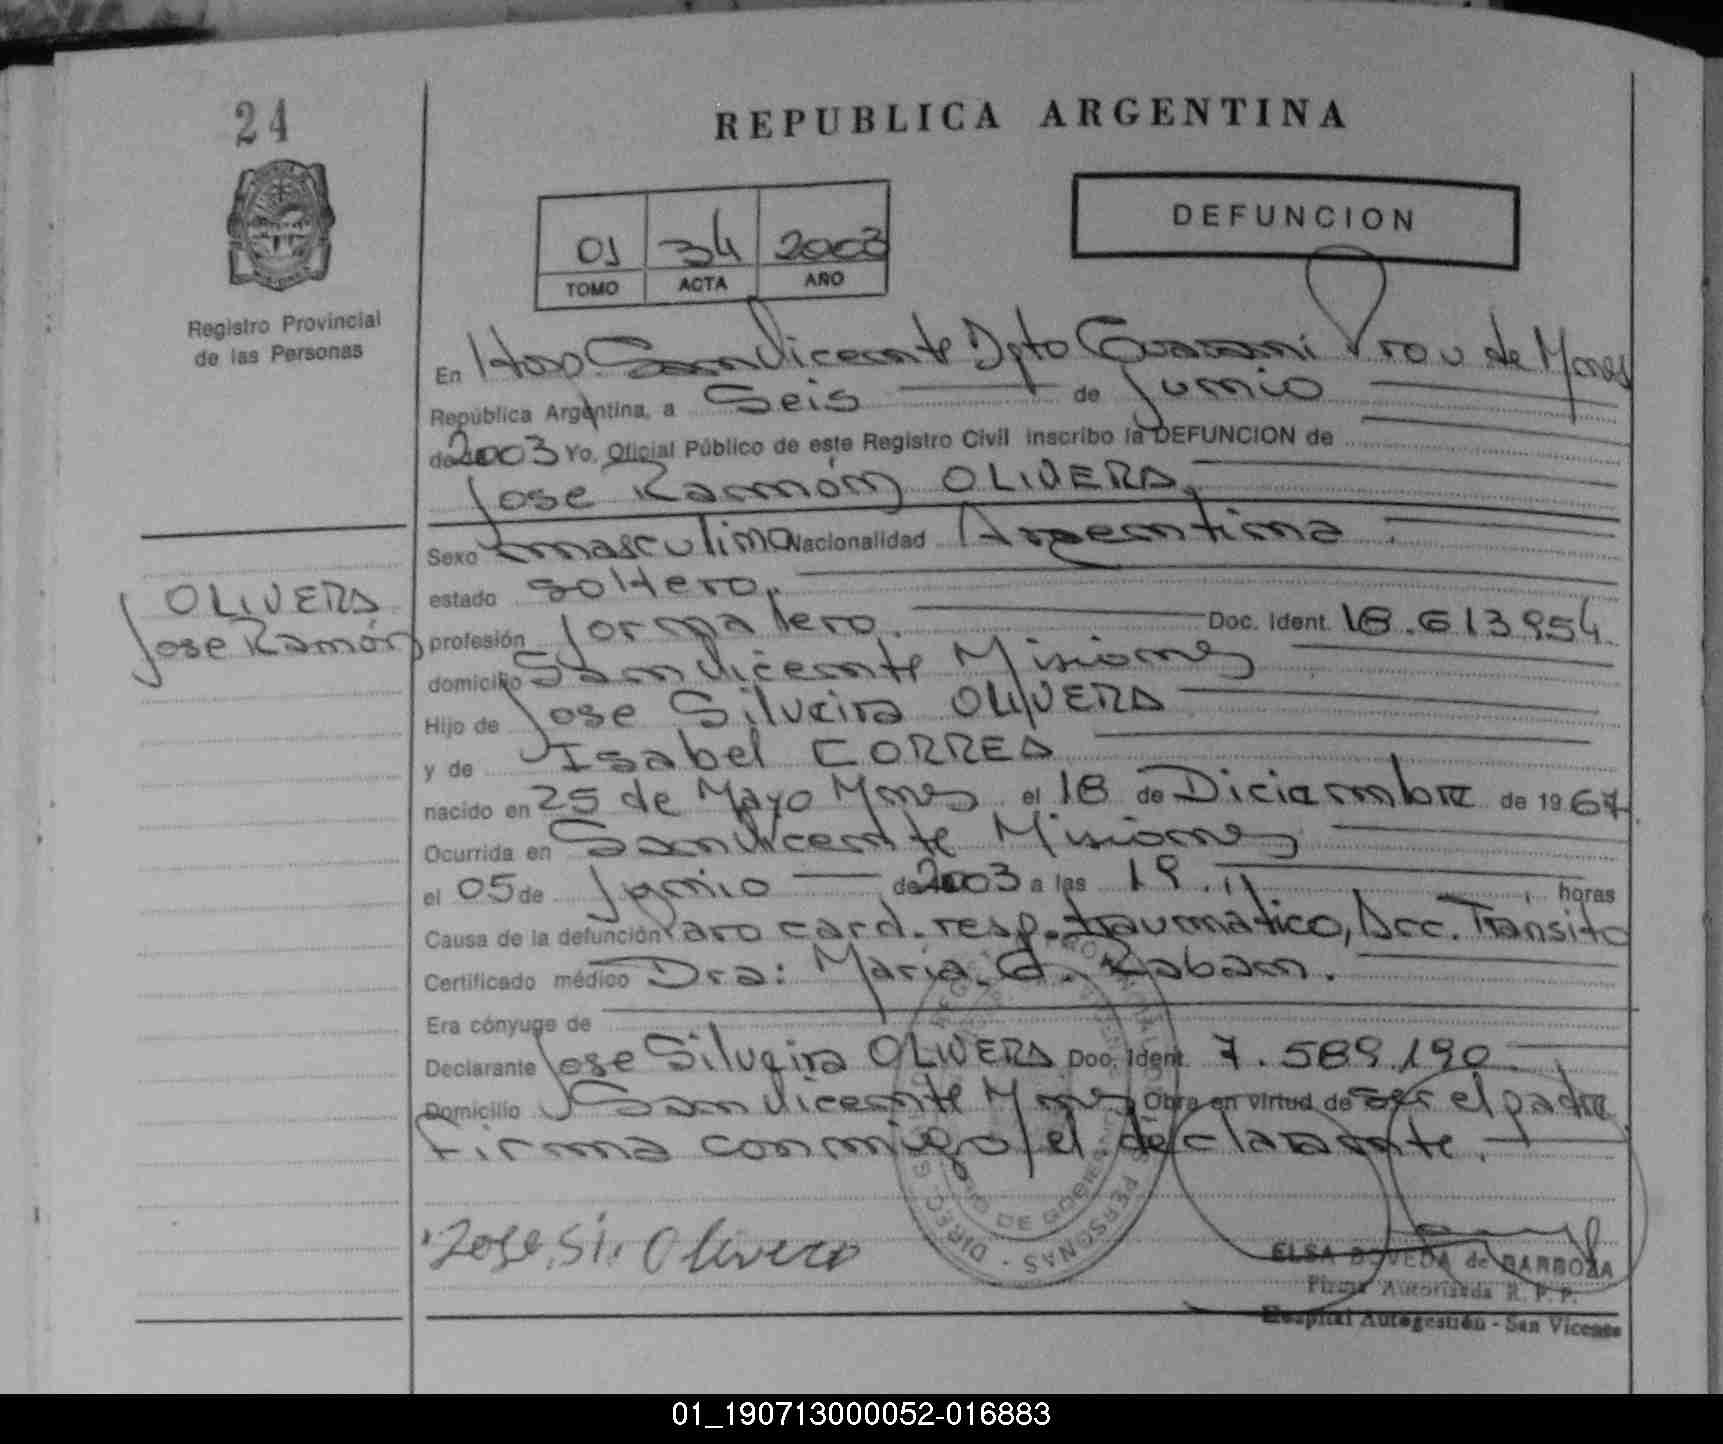 24
REPUBLICA ARGENTINA
DEFUNCION
01 34 2003
TOMO ACTA AÑO
Registro Provincial
de las Personas
En Hosp. San Vicente Dpto Guarani Prov de Mnes
República Argentina, a Seis de Junio
de 2003 Yo, Oficial Público de este Registro Civil inscribo la DEFUNCION de
Jose Ramón OLIVERA.
Sexo masculino Nacionalidad Argentina.
estado soltero.
OLIVERA
Jose Ramón
profesión Jornalero. Doc. Ident. 18.613.954.
domicilio San Vicente Misiones
Hijo de Jose Silveira OLIVERA
y de Isabel CORREA
nacido en 25 de Mayo Mnes el 18 de Diciembre de 1967.
Ocurrida en San Vicente Misiones
el 05 de Junio de 2003 a las 19. horas
Causa de la defunción Paro card. resp. traumático, Acc. Tránsito
Certificado médico Dra: Maria. G. Raban.
Era cónyuge de
Declarante Jose Silveira OLIVERA Doc. Ident. 7.589.190
Domicilio San Vicente Mnes Obra en virtud de ser el padre
Firma conmigo el declarante.
Jose. Si. Olivera
ELSA BOVEDA de BARBOZA
Firma Autorizada R. P. P.
Hospital Autogestión - San Vicente
DIREC. PERSONAS DE GOBIERNO
01_190713000052-016883